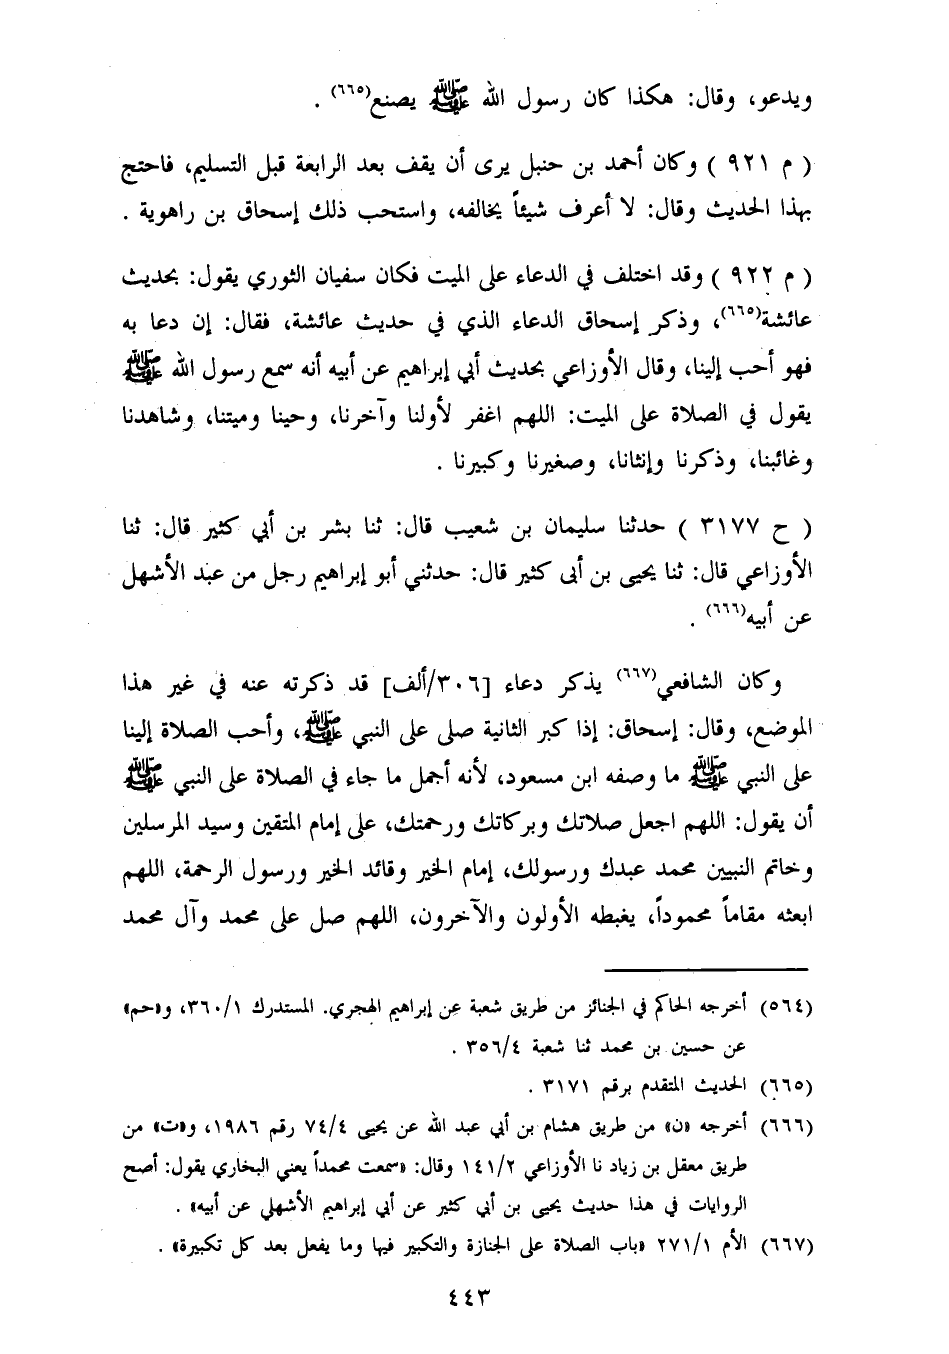 ويدعو، وقال: هكذا كان رسول الله ﷺ يصنع(٦٦٥) .
( م ٩٢١ ) وكان أحمد بن حنبل يرى أن يقف بعد الرابعة قبل التسليم، فاحتج
بهذا الحديث وقال: لا أعرف شيئاً يخالفه، واستحب ذلك إسحاق بن راهوية .
( م ٩٢٢ ) وقد اختلف في الدعاء على الميت فكان سفيان الثوري يقول: بحديث
عائشة(٦٦٥)، وذكر إسحاق الدعاء الذي في حديث عائشة، فقال: إن دعا به
فهو أحب إلينا، وقال الأوزاعي بحديث أبي إبراهيم عن أبيه أنه سمع رسول الله ﷺ
يقول في الصلاة على الميت: اللهم اغفر لأولنا وآخرنا، وحينا وميتنا، وشاهدنا
وغائبنا، وذكرنا وإنثانا، وصغيرنا وكبيرنا .
( ح ٣١٧٧ ) حدثنا سليمان بن شعيب قال: ثنا بشر بن أبي كثير قال: ثنا
الأوزاعي قال: ثنا يحيى بن أبى كثير قال: حدثني أبو إبراهيم رجل من عبد الأشهل
عن أبيه(٦٦٦) .
وكان الشافعي(٦٦٧) يذكر دعاء [٣٠٦/ألف] قد ذكرته عنه في غير هذا
الموضع، وقال: إسحاق: إذا كبر الثانية صلى على النبي ﷺ، وأحب الصلاة إلينا
على النبي ﷺ ما وصفه ابن مسعود، لأنه أجمل ما جاء في الصلاة على النبي ﷺ
أن يقول: اللهم اجعل صلاتك وبركاتك ورحمتك، على إمام المتقين وسيد المرسلين
وخاتم النبيين محمد عبدك ورسولك، إمام الخير وقائد الخير ورسول الرحمة، اللهم
ابعثه مقاماً محموداً، يغبطه الأولون والآخرون، اللهم صل على محمد وآل محمد
(٥٦٤) أخرجه الحاكم في الجنائز من طريق شعبة عن إبراهيم الهجري. المستدرك ٣٦٠/١، و«حم»
عن حسين بن محمد ثنا شعبة ٣٥٦/٤ .
(٦٦٥) الحديث المتقدم برقم ٣١٧١ .
(٦٦٦) أخرجه «ن» من طريق هشام بن أبي عبد الله عن يحيى ٧٤/٤ رقم ١٩٨٦، و«ت» من
طريق معقل بن زياد نا الأوزاعي ١٤١/٢ وقال: «سمعت محمداً يعني البخاري يقول: أصح
الروايات في هذا حديث يحيى بن أبي كثير عن أبي إبراهيم الأشهلي عن أبيه» .
(٦٦٧) الأم ٢٧١/١ «باب الصلاة على الجنازة والتكبير فيها وما يفعل بعد كل تكبيرة» .
٤٤٣